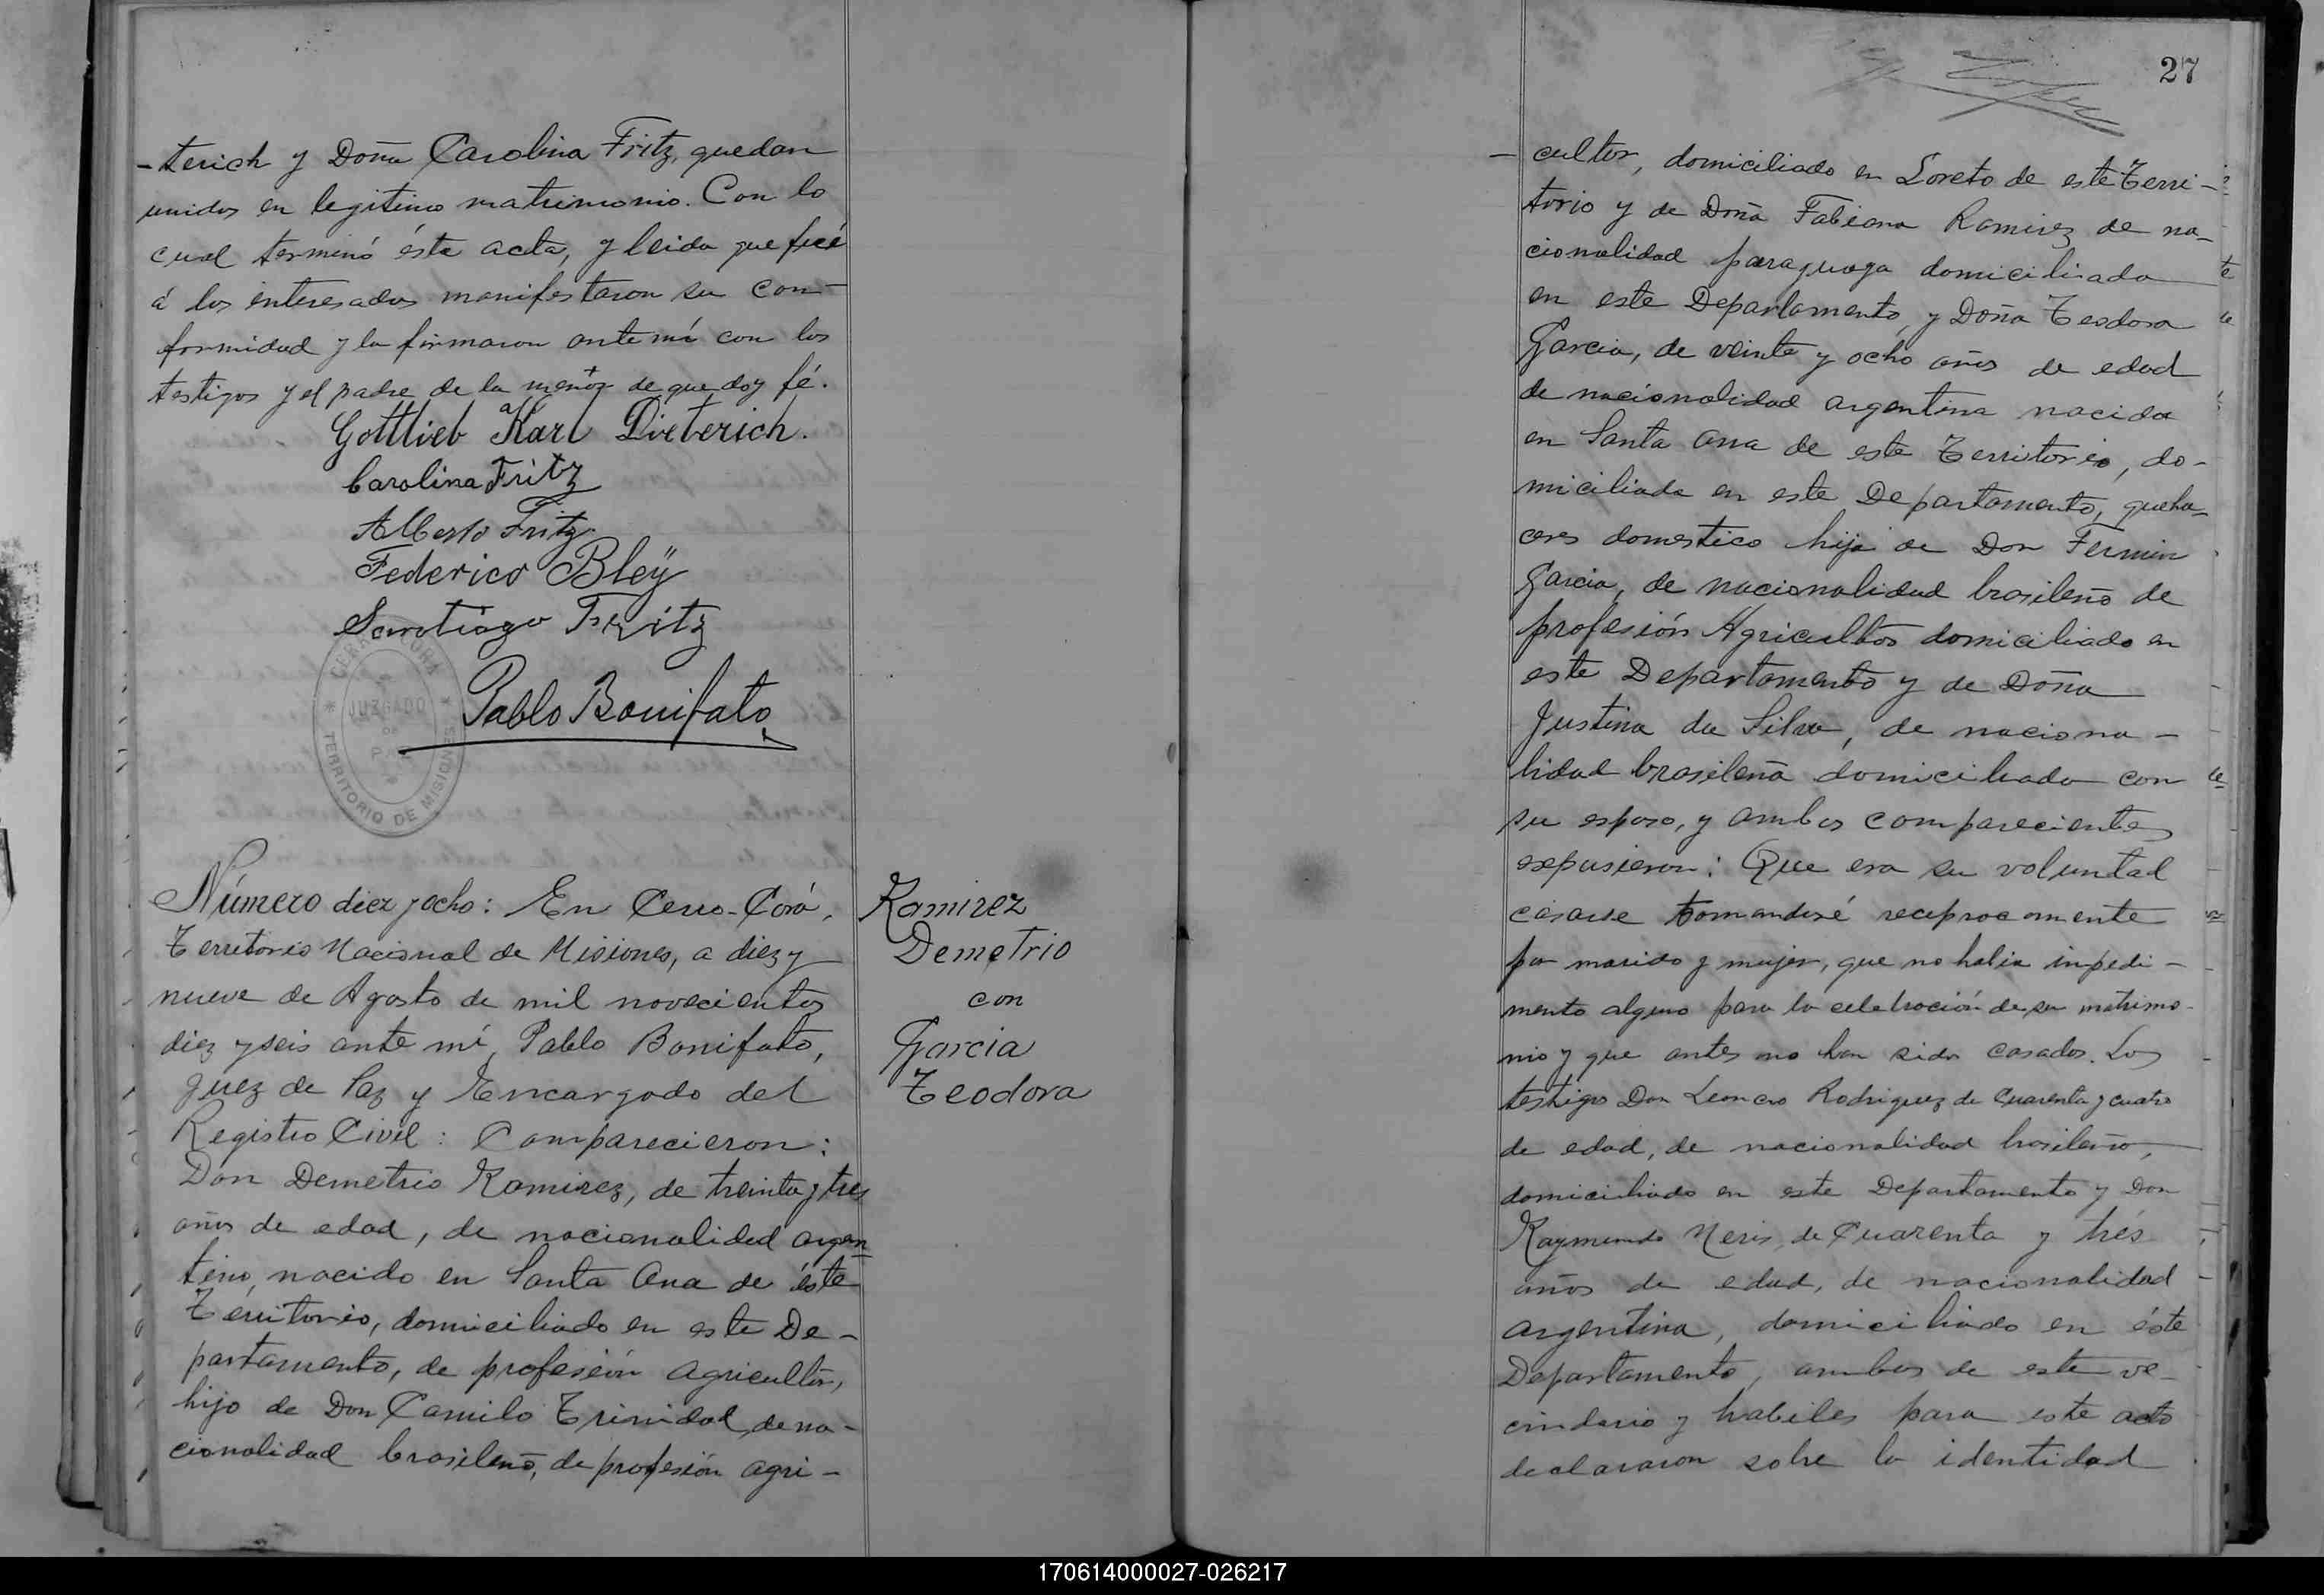 -terich y Doña Carolina Fritz, quedan
unidos en legitimo matrimonio. Con lo
cual terminó ésta acta, y leida que fué
á los interesados manifestaron su con-
formidad y la firmaron ante mí con los
testigos y el padre de la menor de que doy fé.
Gottlieb Karl Dieterich.
Carolina Fritz
Alberto Fritz
Federico Bleÿ
Santiago Fritz
Pablo Bonifato
CERRO CORA
JUZGADO
DE
PAZ
TERRITORIO DE MISIONES
Número diez y ocho: En Cerro-Corá,
Territorio Nacional de Misiones, a diez y
nueve de Agosto de mil novecientos
diez y seis ante mí, Pablo Bonifato,
Juez de Paz y Encargado del
Registro Civil: Comparecieron:
Don Demetrio Ramirez, de treinta y tres
años de edad, de nacionalidad argen
tino, nacido en Santa Ana de éste
Territorio, domiciliado en este De-
partamento, de profesión agricultor,
hijo de Don Camilo Trinidad, de na-
cionalidad brasileño, de profesión agri-
Ramirez
Demetrio
con
Garcia
Teodora
27
- cultor, domiciliado en Loreto de este Terri-
torio y de Doña Fabiana Ramirez de na-
cionalidad paraguaya domiciliada
en este Departamento, y Doña Teodora
Garcia, de veinte y ocho años de edad
de nacionalidad argentina nacida
en Santa Ana de este Territorio, do-
miciliada en este Departamento, queha-
ceres domestico hija de Don Fermin
Garcia, de nacionalidad brasileño de
profesión Agricultor domiciliado en
este Departamento y de Doña
Justina da Silva, de naciona-
lidad brasileña domiciliada con
su esposo, y ambos comparecientes
expusieron: Que era su voluntad
casarse tomandosé reciprocamente
por marido y mujer, que no habia inpedi-
mento alguno para la celebración de su matrimo-
nio y que antes no han sido casados. Los
testigos Don Leoncio Rodriguez de Cuarenta y cuatro
de edad, de nacionalidad brasileño,
domiciliado en este Departamento y Don
Raymundo Neris, de Cuarenta y trés
años de edad, de nacionalidad
argentina, domiciliado en éste
Departamento, ambos de este ve-
cindario y habiles para este acto
declararon sobre la identidad
170614000027-026217